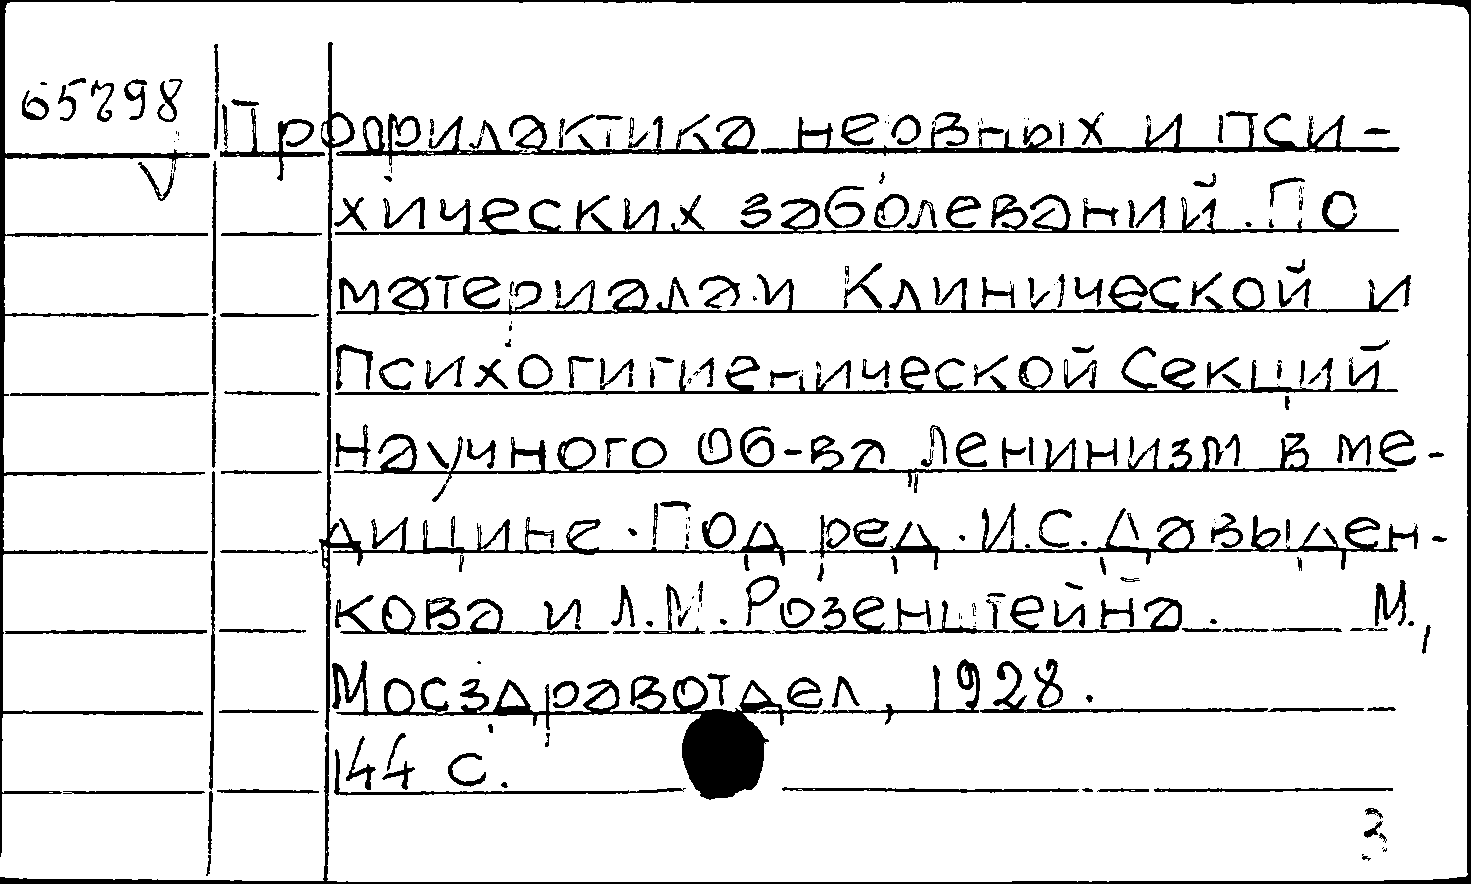 65798
Профилактика нервных и пси-
хических заболеваний. По
материалам Клинической и
Психогигиенической Секций
научного Об-ва „Ленинизм в ме-
дицине. Под ред. И.С. Давыден-
кова и Л.М. Розенштейна. М.,
Мосздравотдел, 1928.
144 с.
3